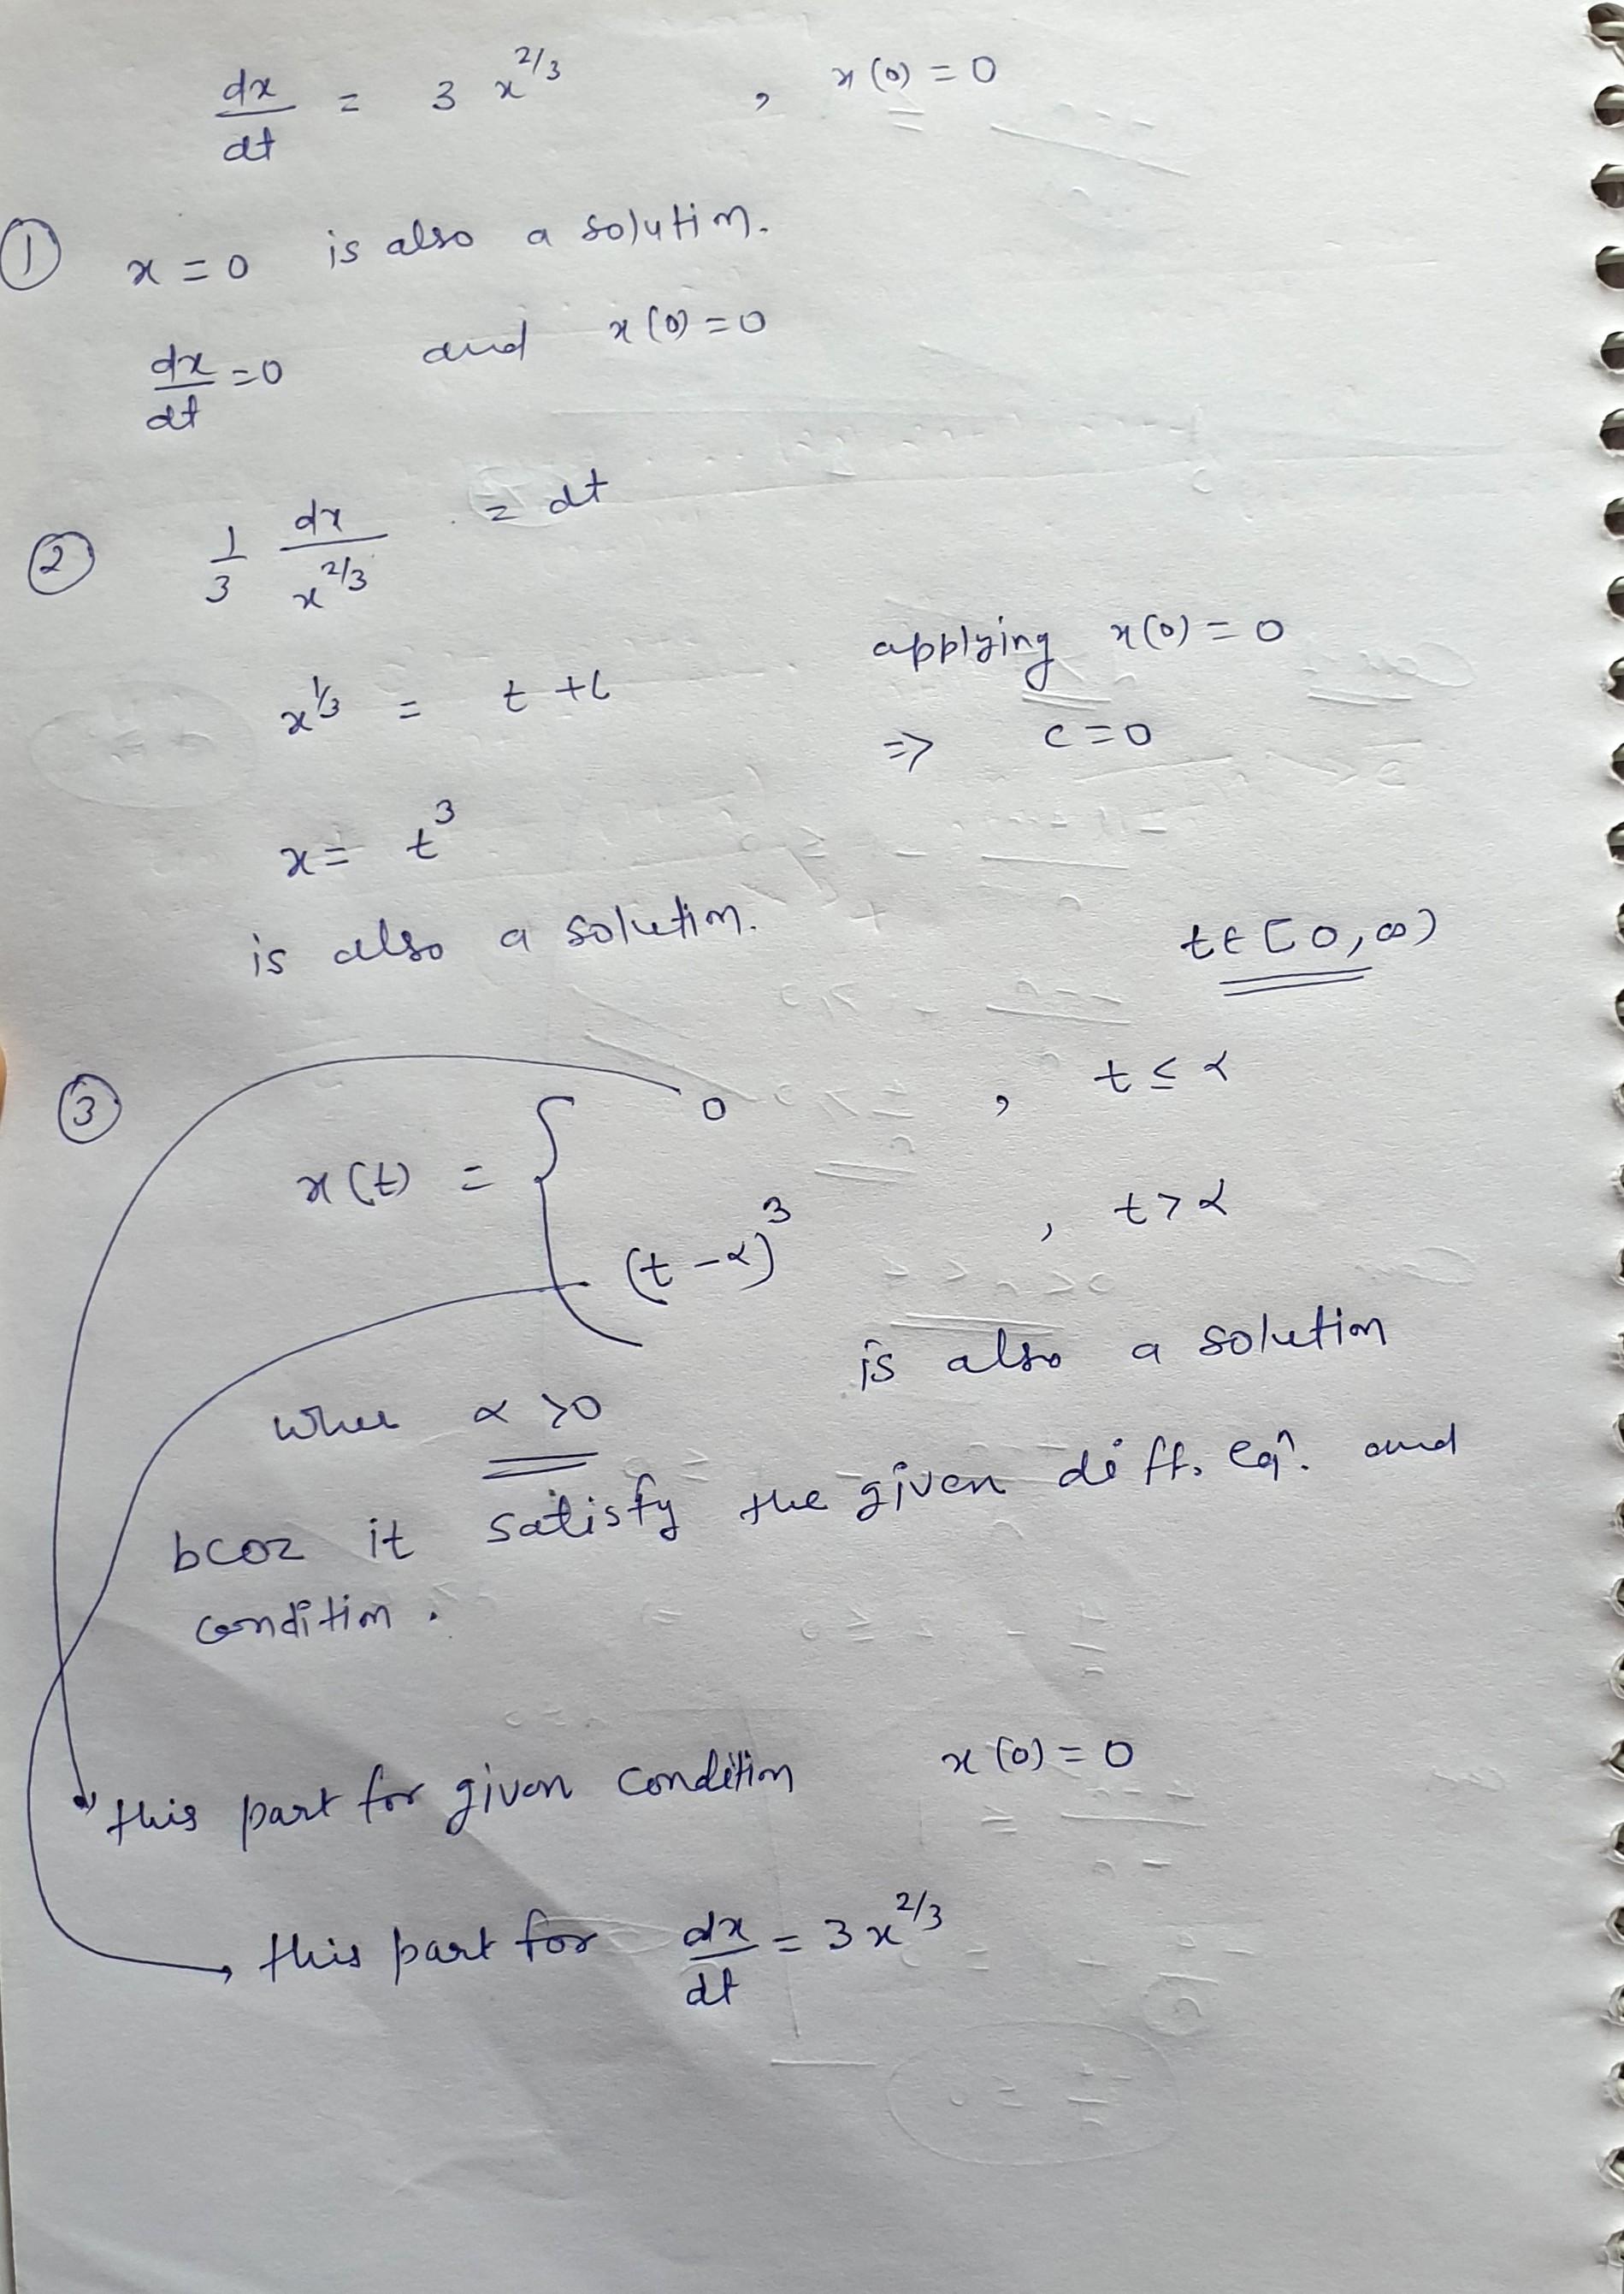 dx/dt = 3 x^{2/3} , x(0) = 0
① x = 0 is also a solution.
dx/dt = 0 and x(0) = 0
② 1/3 dx/x^{2/3} = dt
applying x(0) = 0
x^{1/3} = t + c
=> c = 0
x = t^3
is also a solution.
t ∈ [0, ∞)
③ x(t) = { 0 , t ≤ α
(t - α)^3 , t > α
is also a solution
where α > 0
bcoz it satisfy the given diff. eqn. and
condition.
this part for given condition x(0) = 0
this part for dx/dt = 3 x^{2/3}